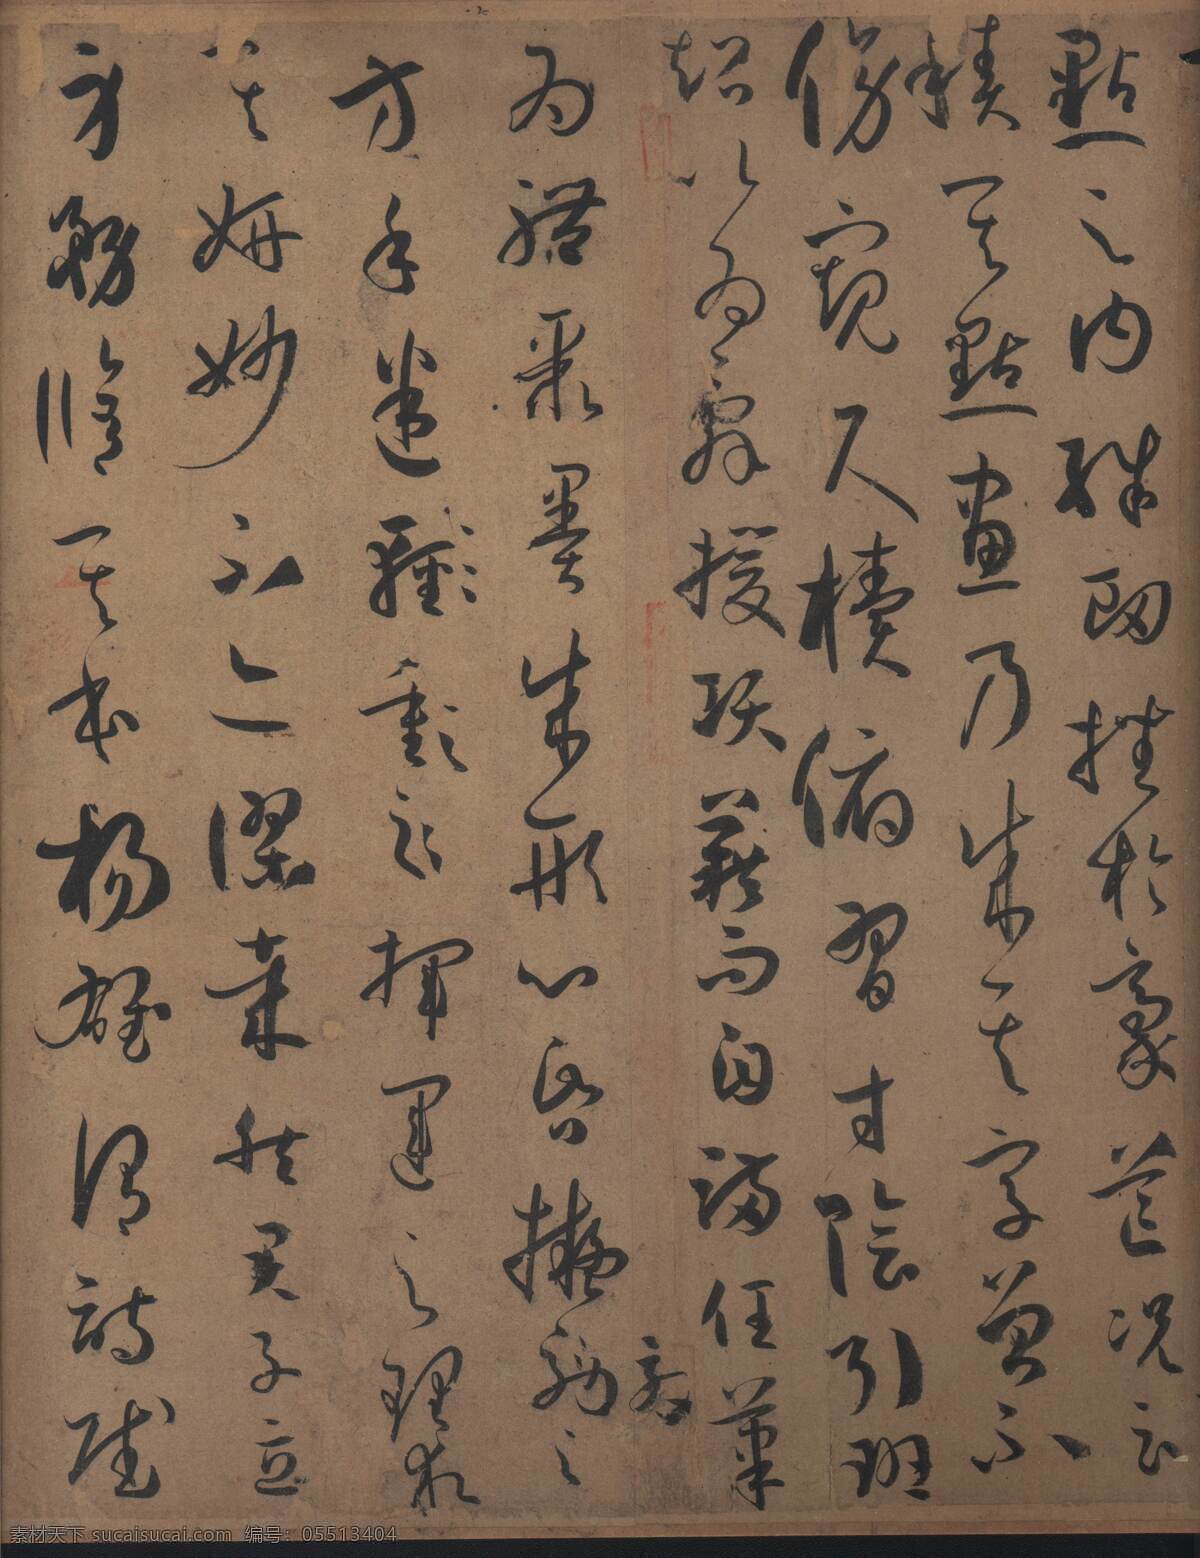 點之內殊衄挫於豪芒況云
積其點畫乃成其字曾不
傍窺尺牘俯習寸陰引班
超以為辭援項籍而自滿任筆
為體聚墨成形心昏擬效之
方手迷揮運之理求
其妍妙不亦謬哉然君子立
身務脩其本楊雄謂詩賦
素材天下 sucaisucai.com 编号：05513404